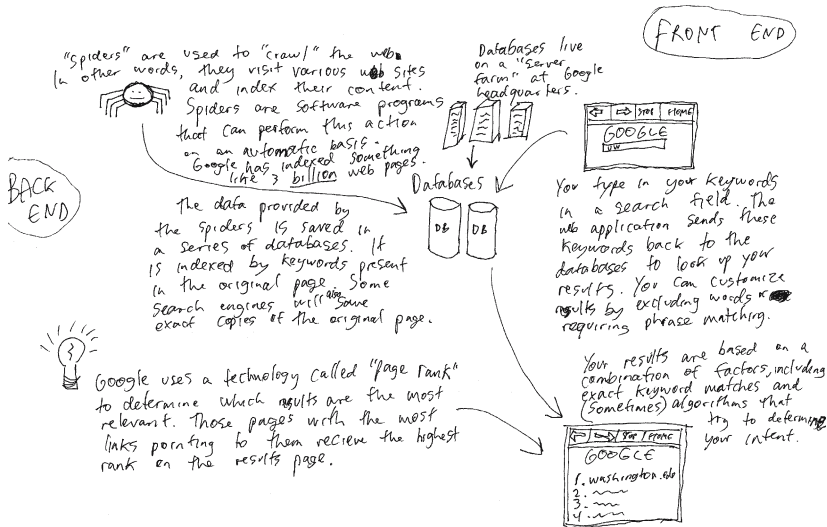 FRONT END
"Spiders" are used to "crawl" the web.
In other words, they visit various web sites
and index their content.
Spiders are software programs
that can perform this action
on an automatic basis.
Google has indexed something
like 3 billion web pages.
Databases live
on a "server
farm" at Google
headquarters.
STOP HOME
GOOGLE
UW
BACK
END
Databases
DB DB
The data provided by
the spiders is saved in
a series of databases. It
is indexed by keywords present
in the original page. Some
search engines will also save
exact copies of the original page.
You type in your keywords
in a search field. The
web application sends these
keywords back to the
databases to look up your
results. You can customize
results by excluding words or
requiring phrase matching.
Google uses a technology called "page rank"
to determine which results are the most
relevant. Those pages with the most
links pointing to them recieve the highest
rank on the results page.
Your results are based on a
combination of factors, including
exact keyword matches and
(sometimes) algorithms that
try to determine
your intent.
STOP HOME
GOOGLE
1. washington.edu
2.
3.
4.